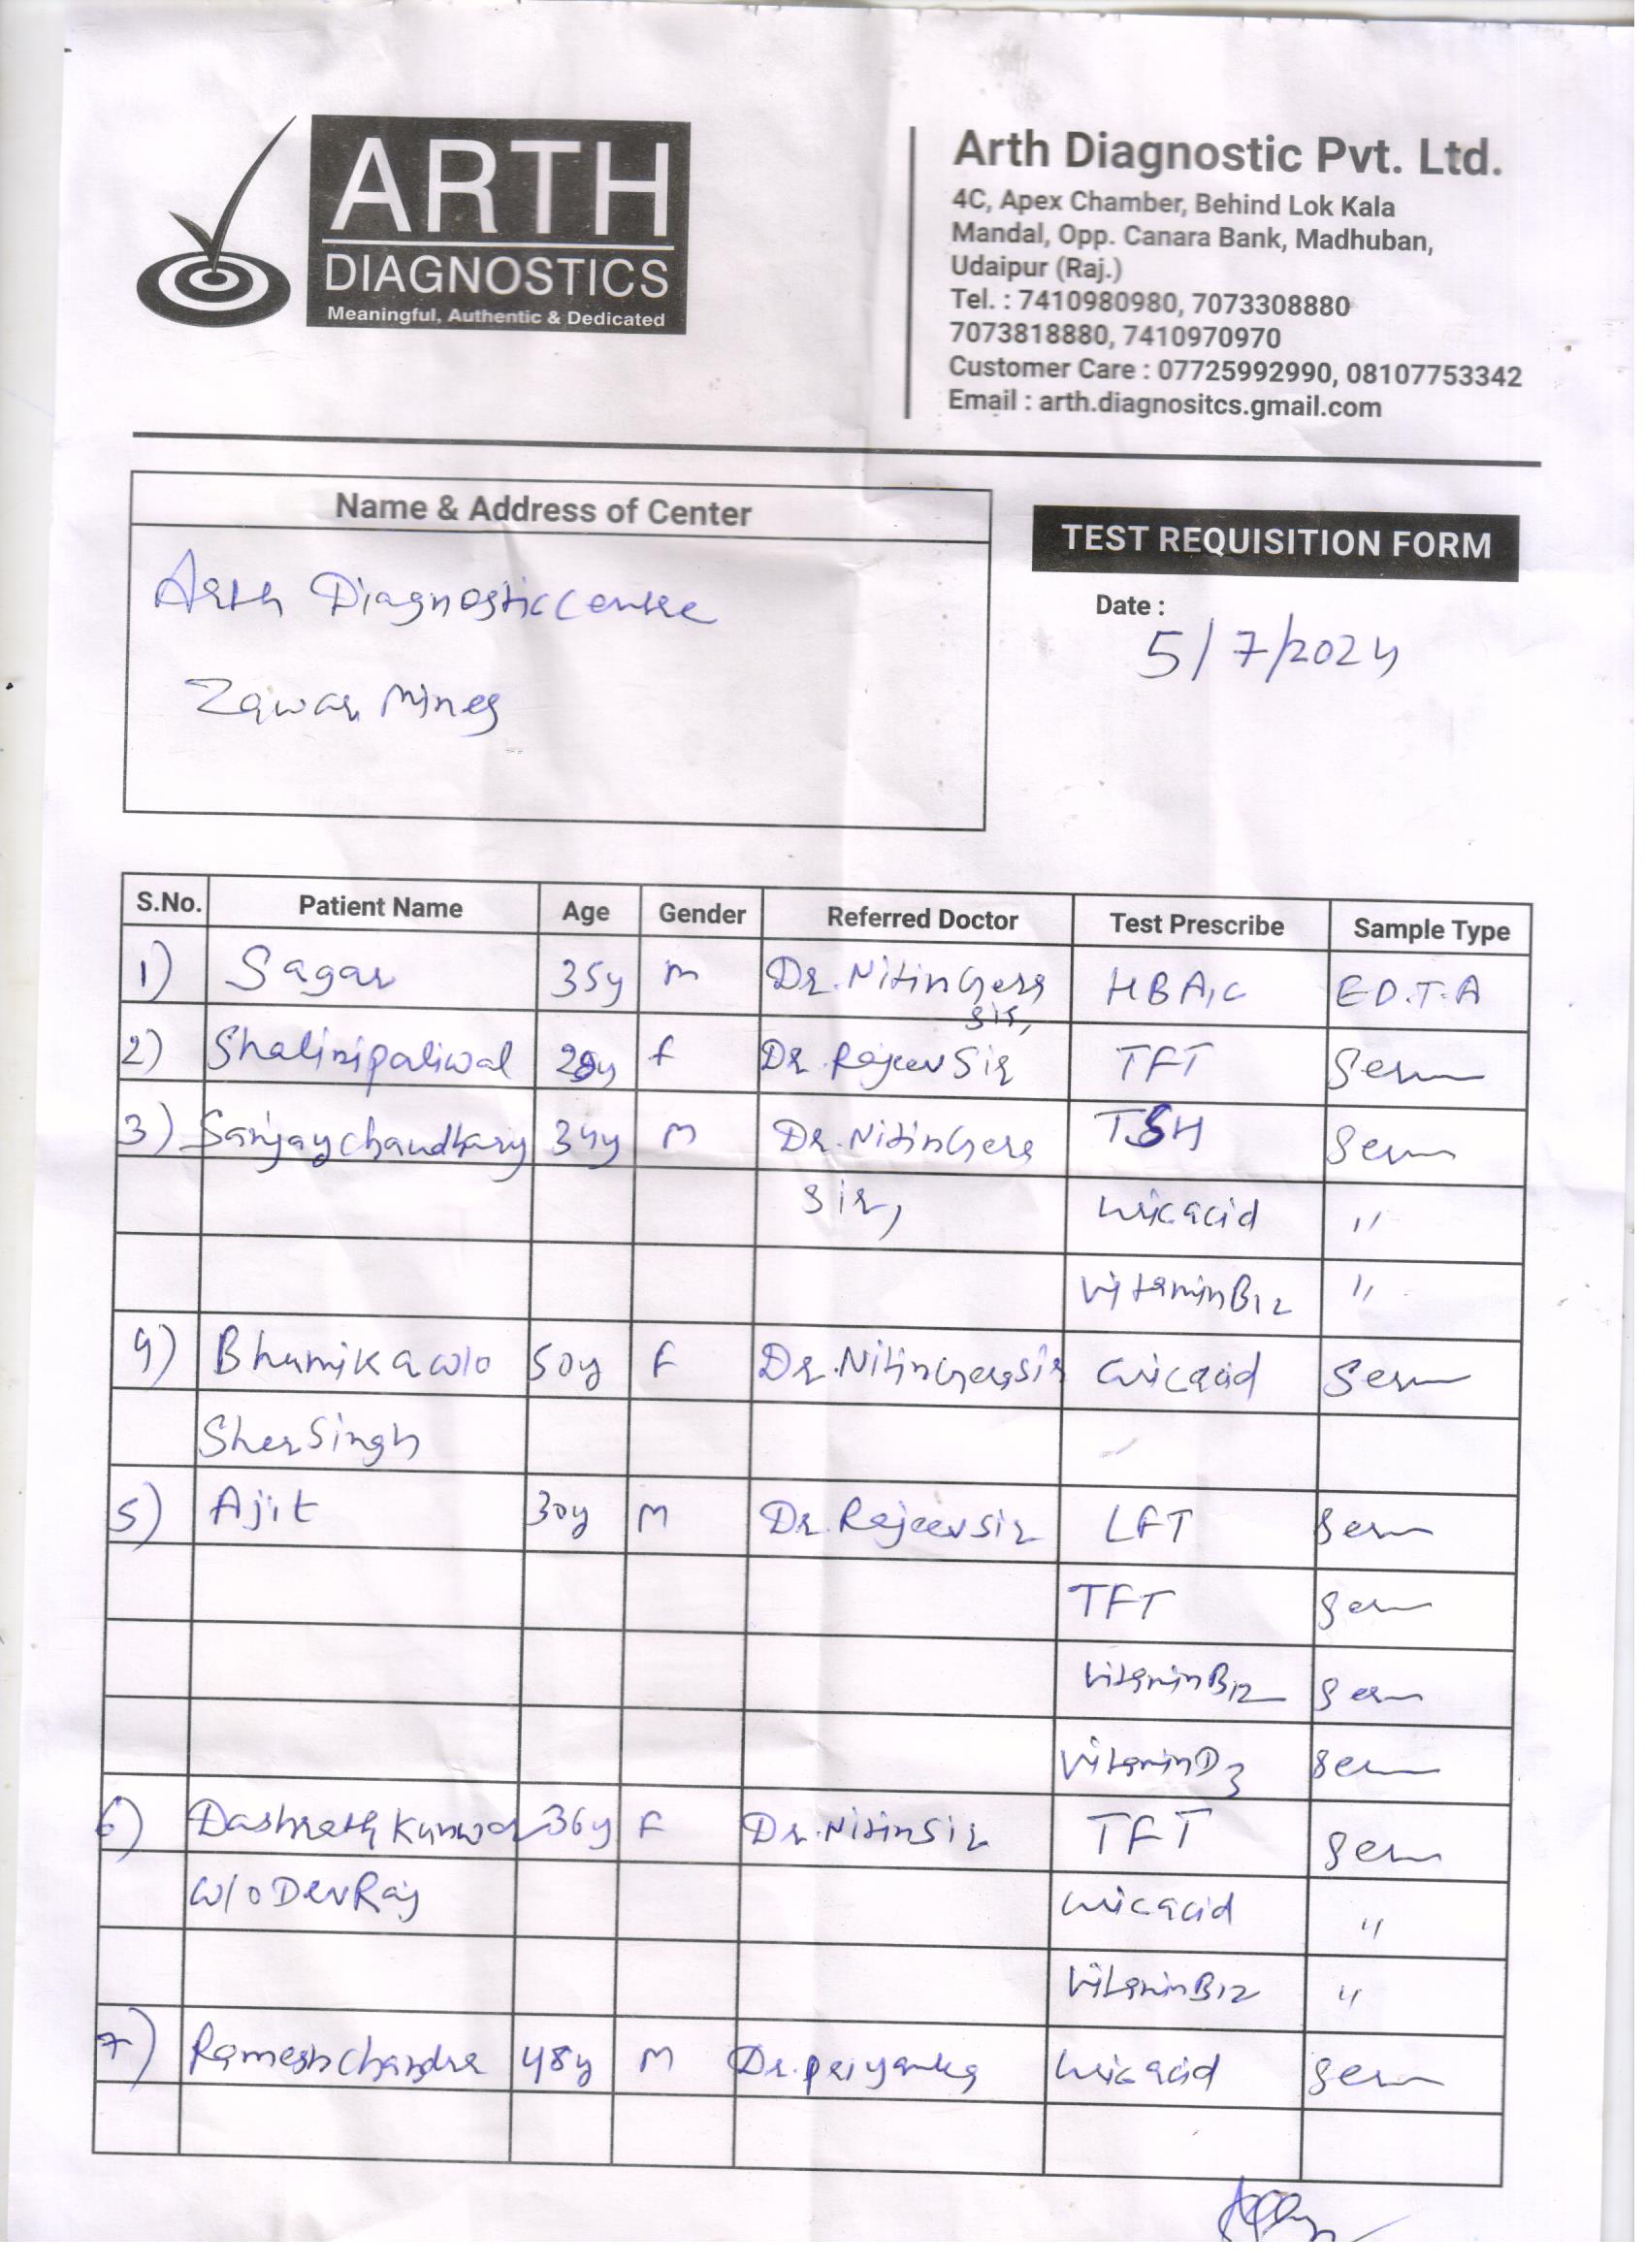 ARTH
DIAGNOSTICS
Meaningful, Authentic & Dedicated
Arth Diagnostic Pvt. Ltd.
4C, Apex Chamber, Behind Lok Kala
Mandal, Opp. Canara Bank, Madhuban,
Udaipur (Raj.)
Tel. : 7410980980, 7073308880
7073818880, 7410970970
Customer Care : 07725992990, 08107753342
Email : arth.diagnositcs.gmail.com
Name & Address of Center
Arth Diagnostic Centre
Zawar Mines
TEST REQUISITION FORM
Date :
5/7/2024
S.No. Patient Name Age Gender Referred Doctor Test Prescribe Sample Type
1) Sagar 35y M Dr. Nitin Gera HBA1C E.D.T.A
sir,
2) Shalini paliwal f Dr. Rajeev Sir TFT Serum
3) Sanjay chaudhary 34y M Dr. Nitin Gera TSH Serum
Sir, uric acid "
Vitamin B12 "
4) Bhumika w/o 50y F Dr. Nitin Gera Sir uric acid Serum
Sher Singh
5) Ajit 30y M Dr. Rajeev sir LFT Serum
TFT Serum
Vitamin B12 Serum
Vitamin D3 Serum
6) Dashrath Kunwar 36y F Dr. Nitin Sir TFT Serum
w/o Dev Raj uric acid "
Vitamin B12 "
7) Ramesh Chandra 48y M Dr. priyanka uric acid Serum